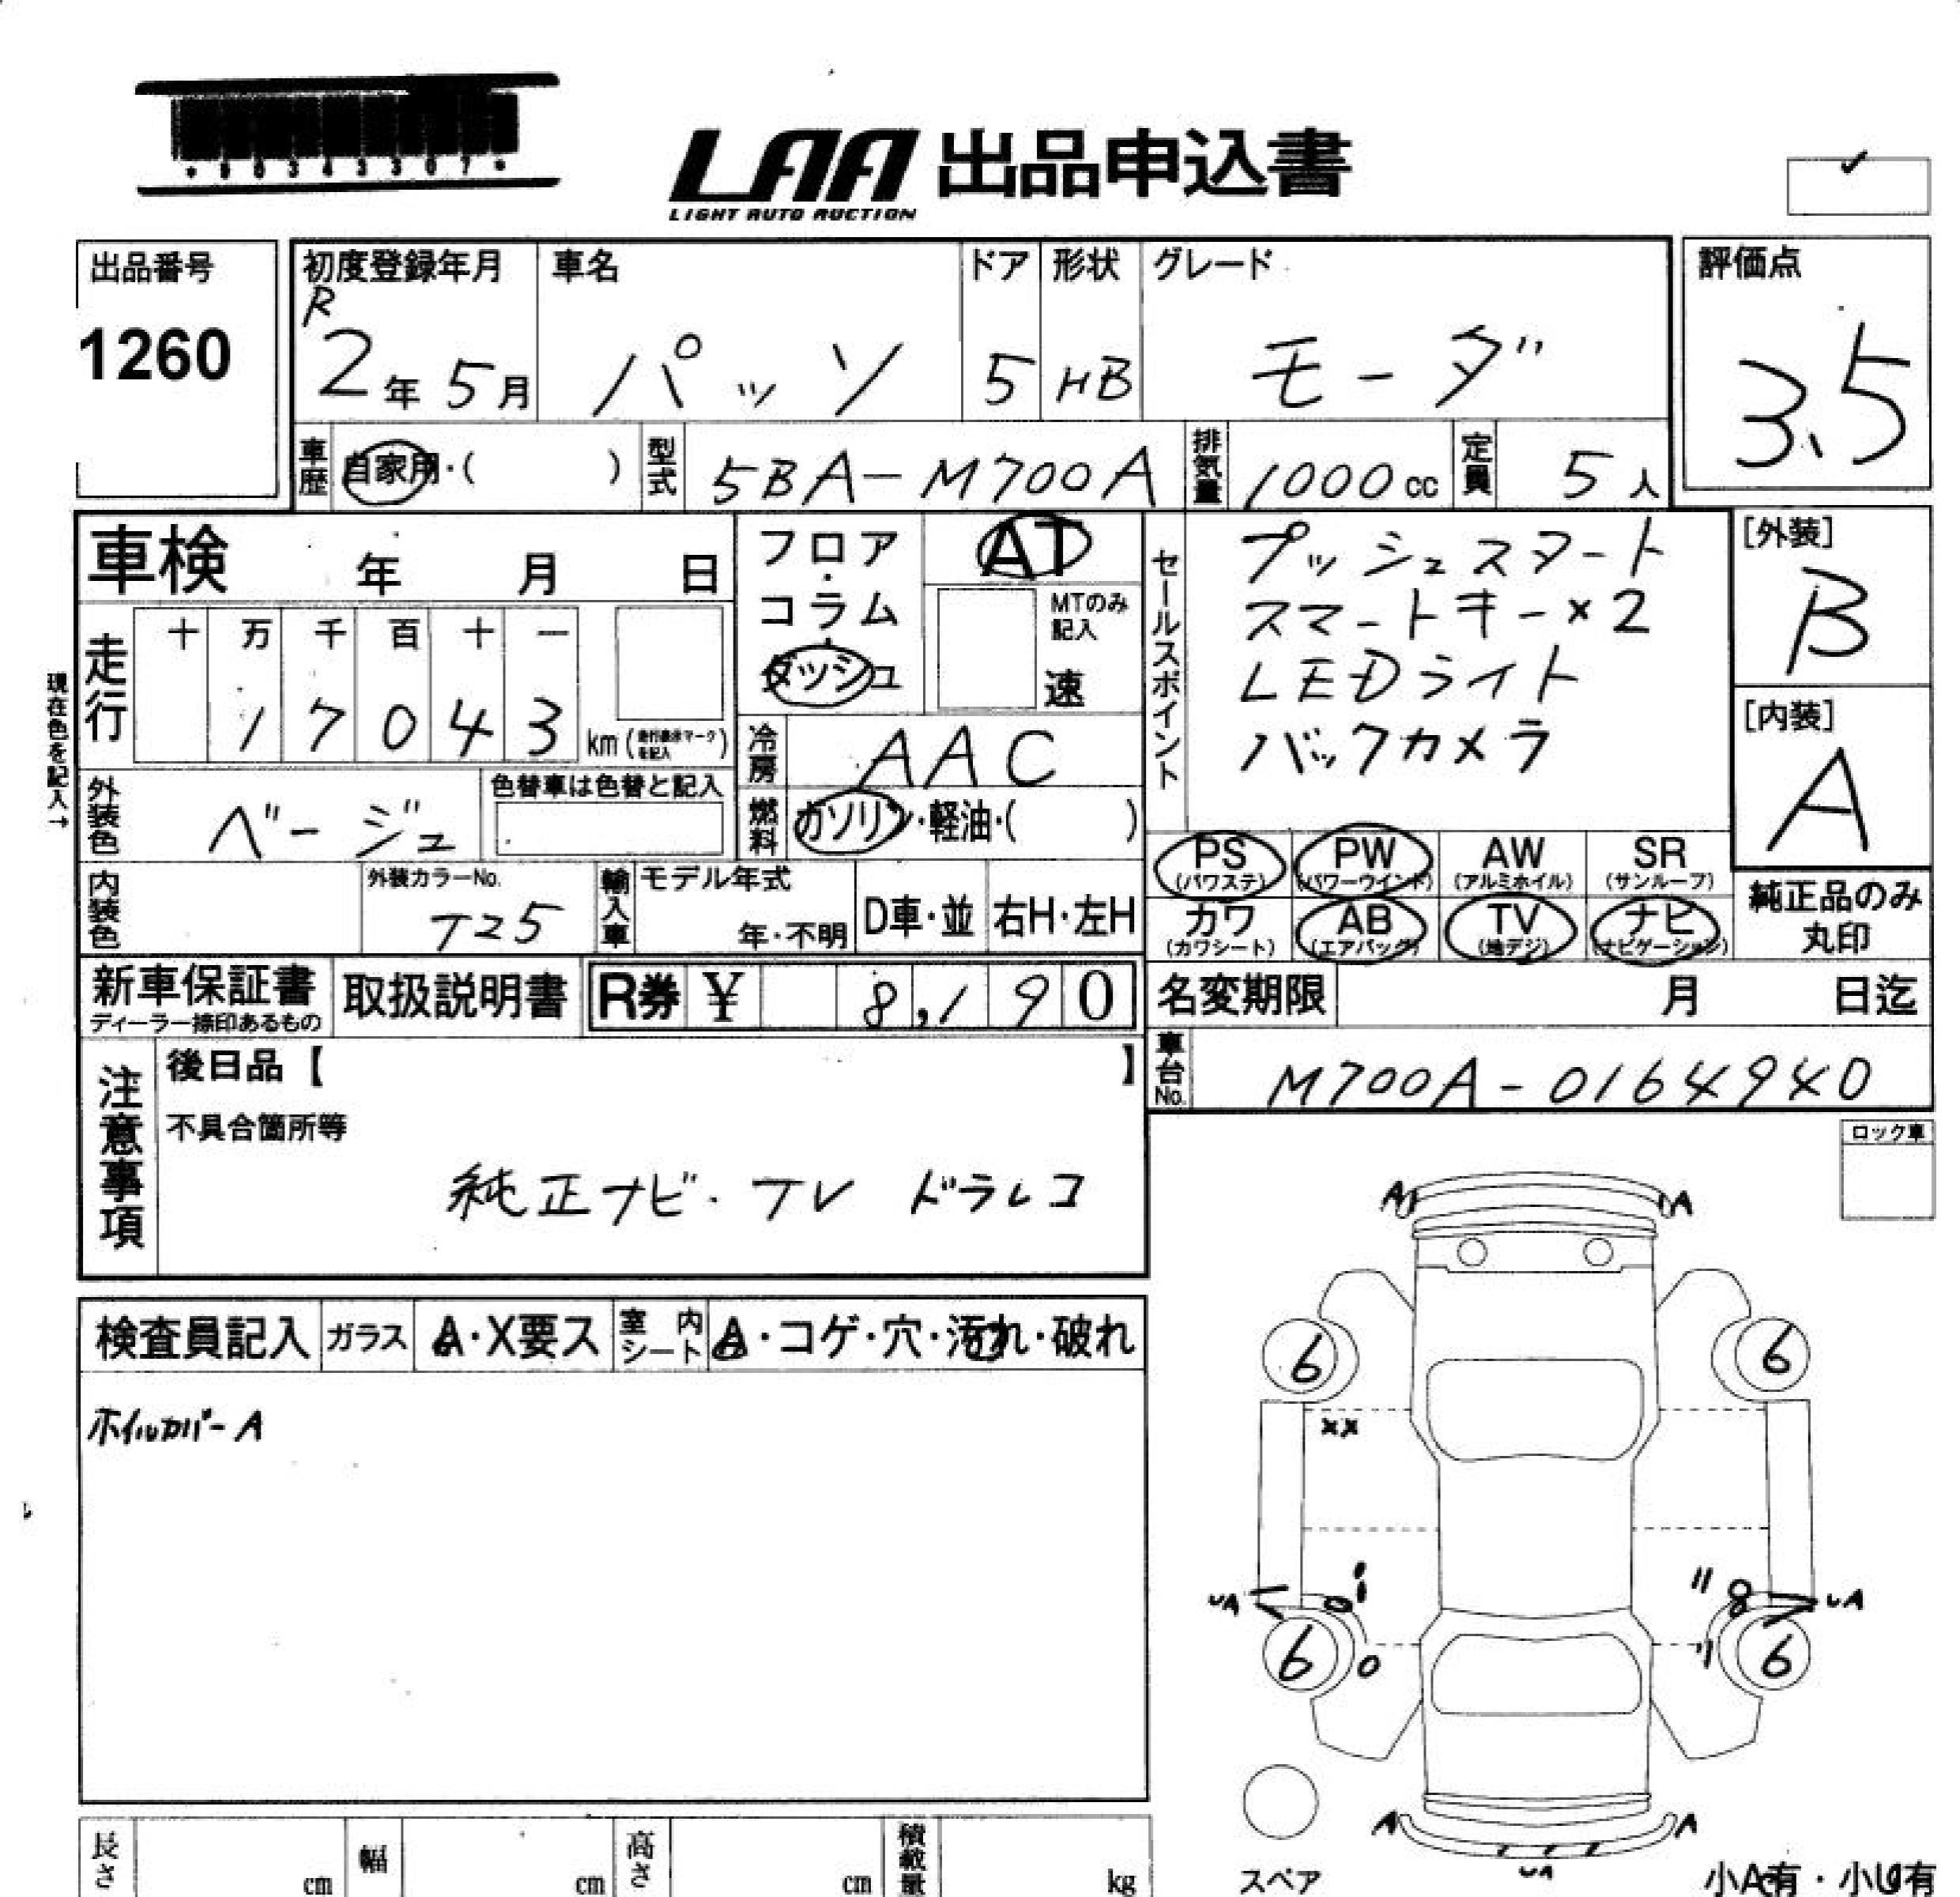 LAA 出品申込書
LIGHT AUTO AUCTION
出品番号
1260
初度登録年月
R
2年 5月
車名
パッソ
ドア
5
形状
HB
グレード
モーダ
評価点
3.5
車歴
自家用・( )
型式
5BA-M700A
排気量
1000cc
定員
5人
車検 年 月 日
現在色を記入→
走行
十 万 千 百 十 一
1 7 0 4 3
km(走行表示マークを記入)
フロア・コラム・ダッシュ
AT
MTのみ記入
速
冷房
AAC
燃料
ガソリン・軽油・( )
セールスポイント
プッシュスタート
スマートキー×2
LEDライト
バックカメラ
[外装]
B
[内装]
A
外装色
ベージュ
色替車は色替と記入
内装色
外装カラーNo.
T25
輸入車
モデル年式
年・不明
D車・並
右H・左H
PS (パワステ)
PW (パワーウインド)
AW (アルミホイル)
SR (サンルーフ)
カワ (カワシート)
AB (エアバッグ)
TV (地デジ)
ナビ (ナビゲーション)
純正品のみ
丸印
新車保証書
ディーラー捺印あるもの
取扱説明書
R券 ¥ 8,190
名変期限 月 日迄
車台No.
M700A-0164940
注意事項
後日品【 】
不具合箇所等
純正ナビ・TV ドラレコ
ロック車
検査員記入
ガラス
A・X要ス
室内シート
A・コゲ・穴・汚れ・破れ
ホイルカバーA
A A
6 6
××
UA UA
6 6
A A
UA
スペア
小A有・小U有
長さ cm
幅 cm
高さ cm
積載量 kg